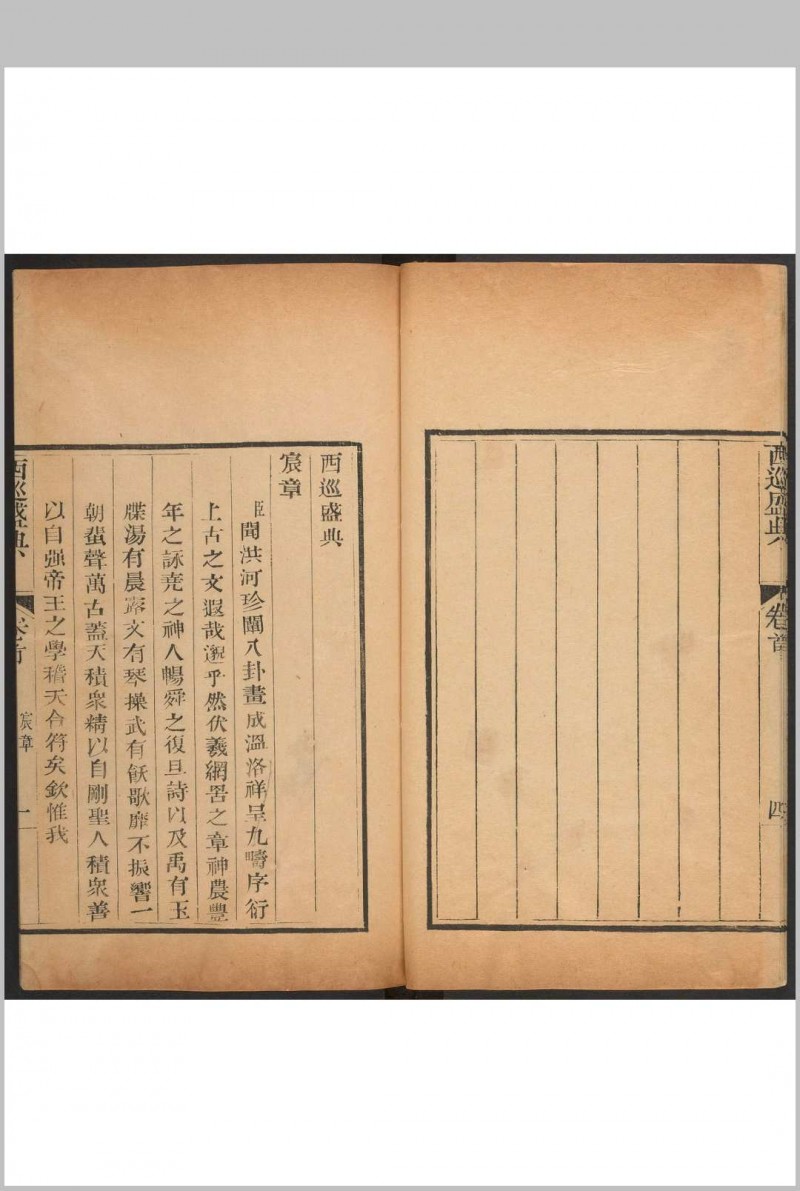 西巡盛典
卷首
四
西巡盛典
宸章
臣聞洪河珍闡八卦畫成溫洛祥呈九疇序衍
上古之文遐哉邈乎然伏羲網罟之章神農豐
年之詠堯之神人暢舜之復旦詩以及禹有玉
牒湯有晨露文有琴操武有飫歌靡不振響一
朝蜚聲萬古蓋天積衆精以自剛聖人積衆善
以自强帝王之學稽天合符矣欽惟我
西巡盛典
卷首
宸章
一